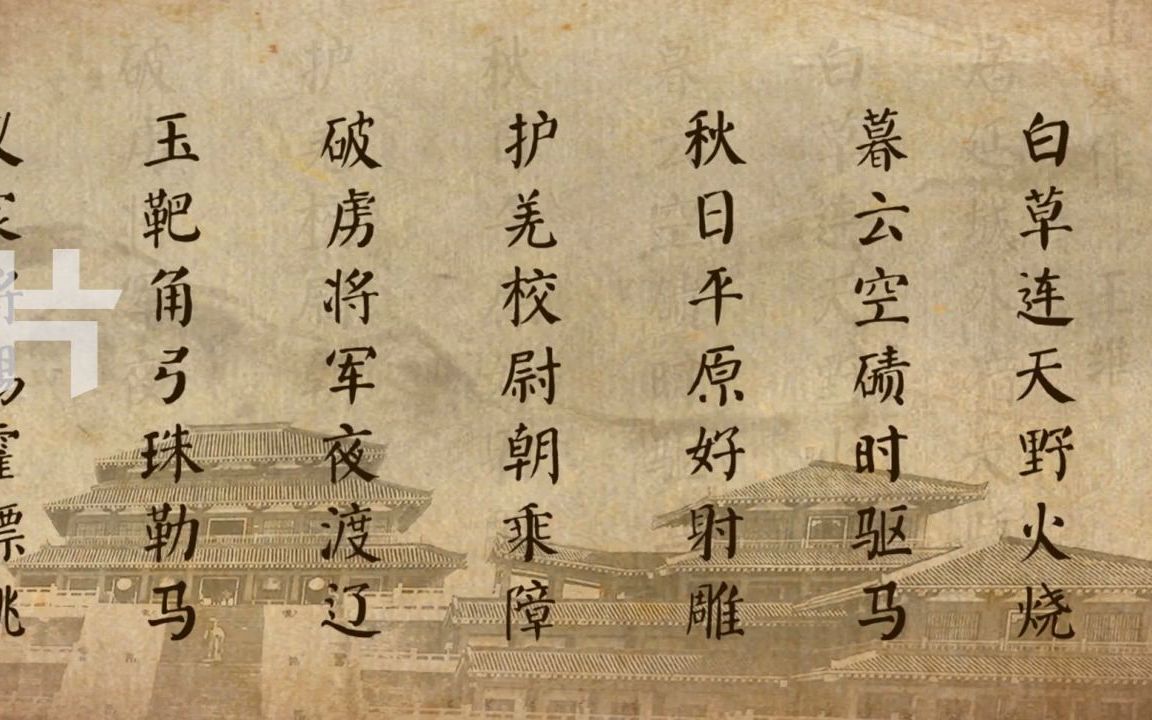 白草连天野火烧
暮云空碛时驱马
秋日平原好射雕
护羌校尉朝乘障
破虏将军夜渡辽
玉靶角弓珠勒马